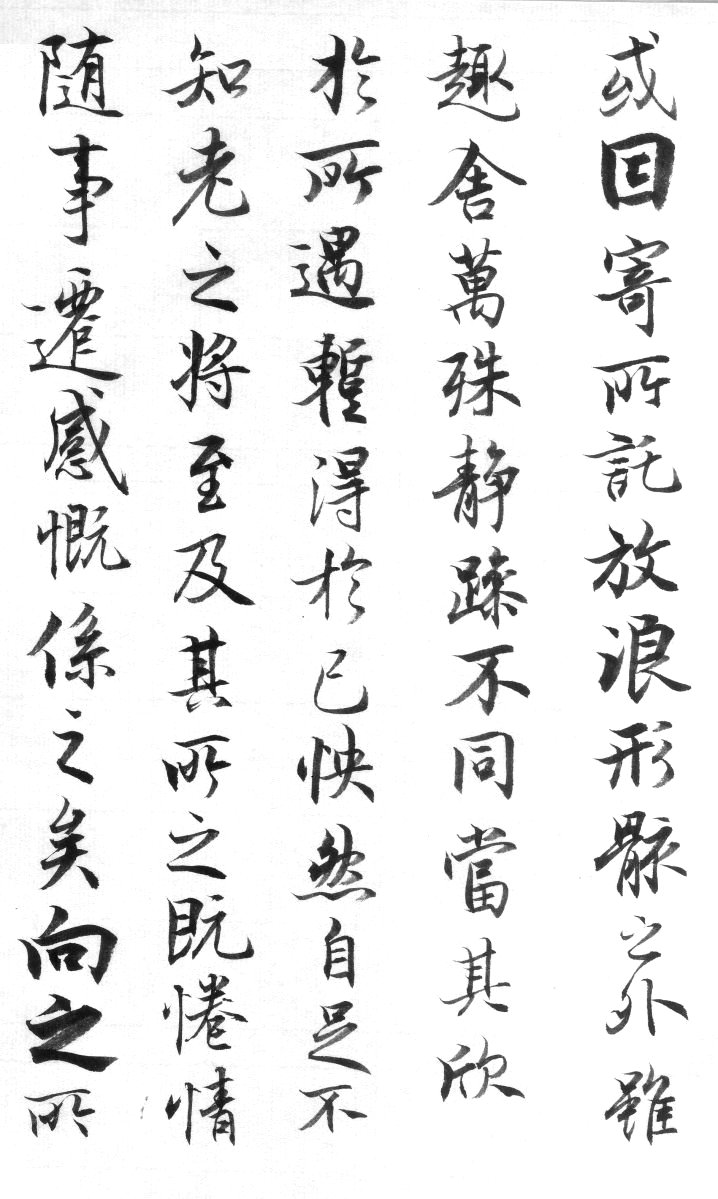 或因寄所託放浪形骸之外雖
趣舍萬殊静躁不同當其欣
於所遇蹔得於己怏然自足不
知老之将至及其所之既惓情
随事遷感慨係之矣向之所